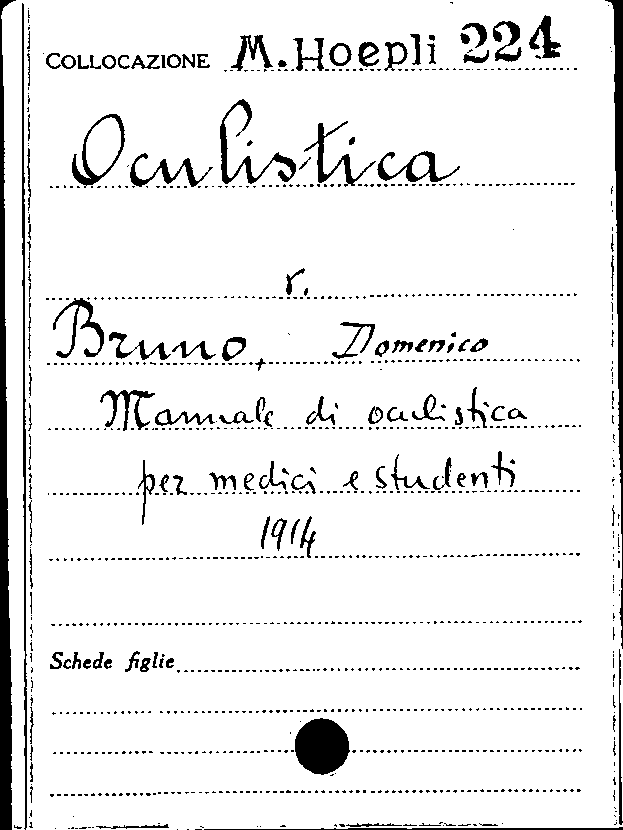 COLLOCAZIONE M. Hoepli 224
Oculistica
r.
Bruno, Domenico
Manuale di oculistica
per medici e studenti
1914
Schede figlie